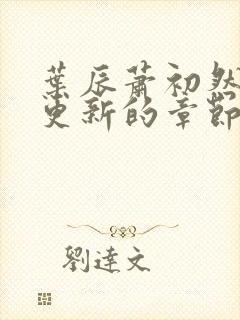 葉辰蕭初然
更新的章節
劉達文